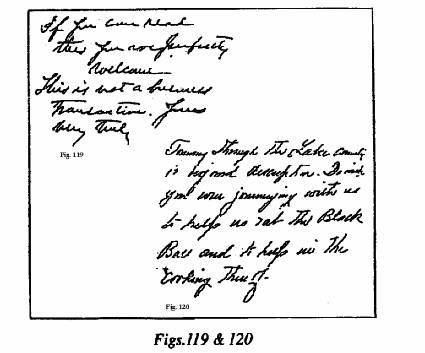 If you can read
this you are perfectly
welcome
This is not a business
transaction. Yours
very truly
Fig. 119
Touring through the Lake County
is beyond description. I wish
you were journeying with us
to help us eat the Black
Bass and to help in the
cooking thereof.
Fig. 120
Figs.119 & 120